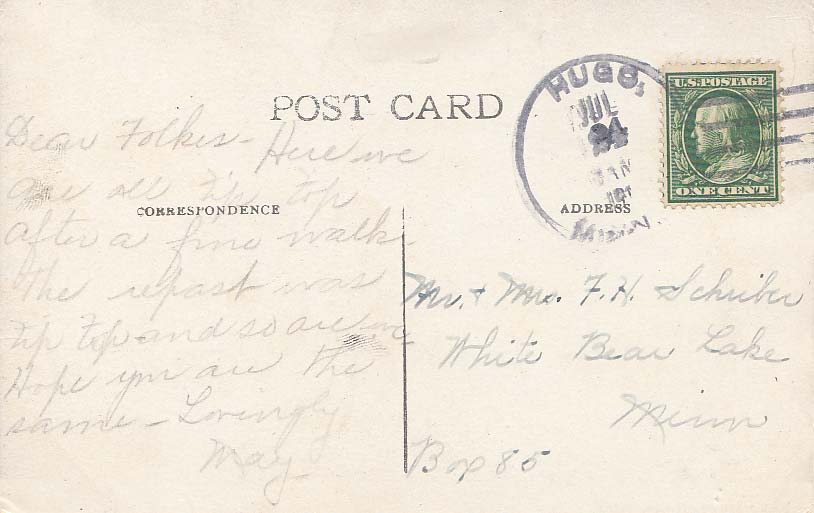 POST CARD
CORRESPONDENCE
Dear Folkes - Here we
are all tip top
after a fine walk.
The repast was
tip top - and so are we
Hope you are the
same - Lovingly
May
HUGO,
JUL
24
MINN
U.S. POSTAGE
ONE CENT
ADDRESS
Mr. & Mrs. F. H. Schriber
White Bear Lake
Minn
Box 85